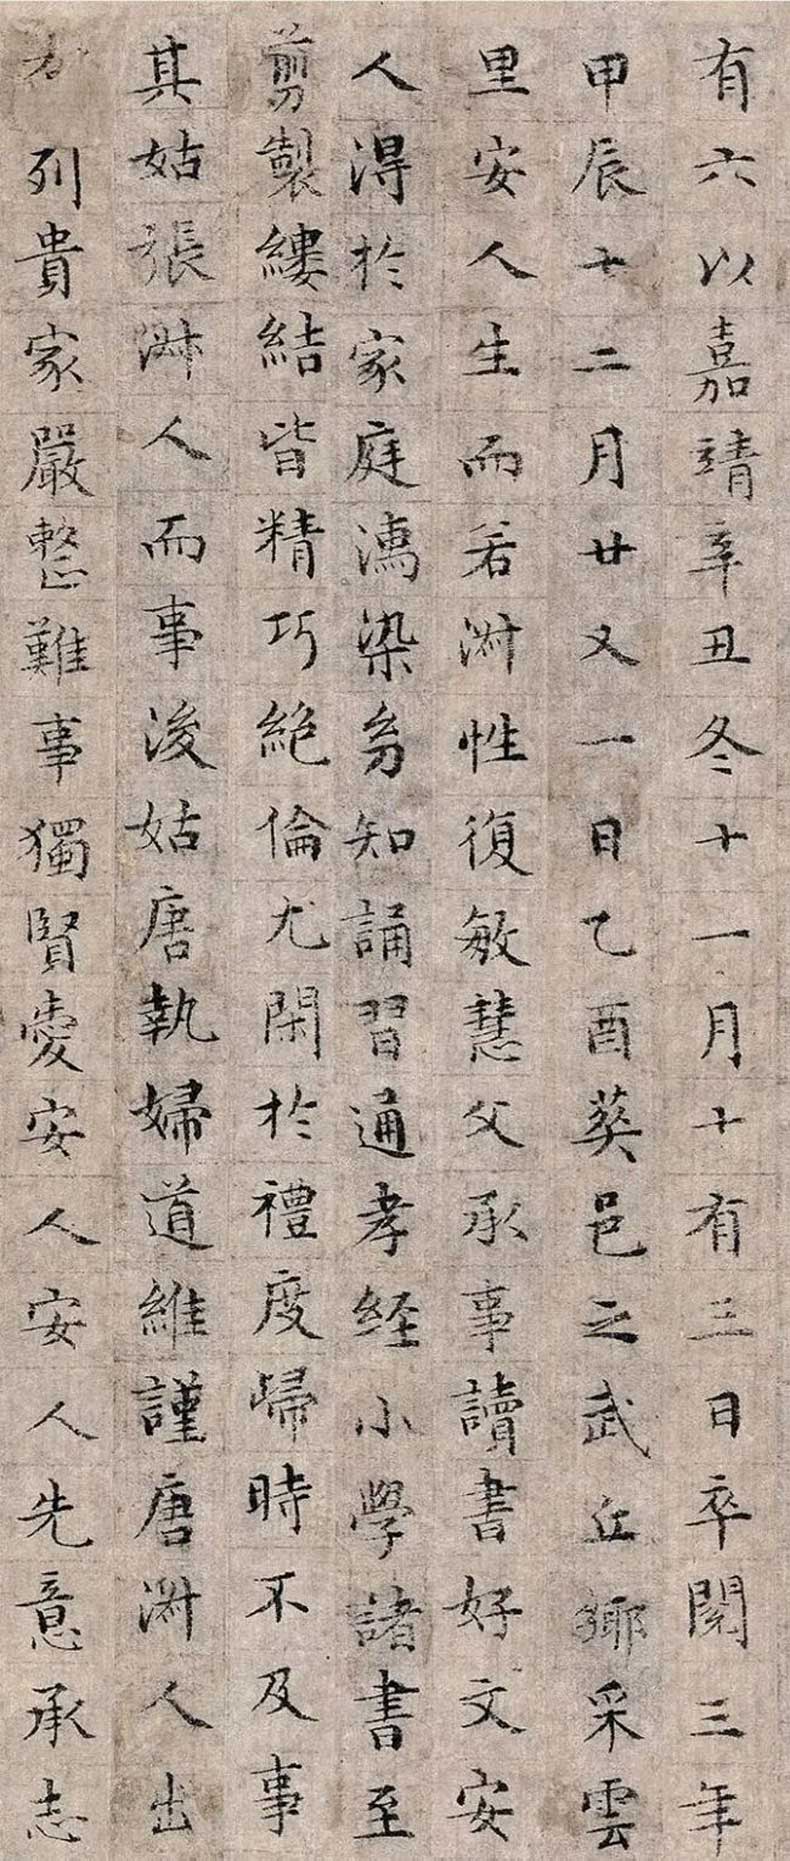 有六以嘉靖辛丑冬十一月十有三日卒閱三年
甲辰十二月廿又一日乙酉葬邑之武丘鄉采雲
里安人生而若淑性復敏慧父承事讀書好文安
人得於家庭濡染幼知誦習通孝經小學諸書至
剪製縷結皆精巧絕倫尤閑於禮度歸時不及事
其姑張淑人而事後姑唐執婦道維謹唐淑人出
列貴家嚴整難事獨賢愛安人安人先意承志